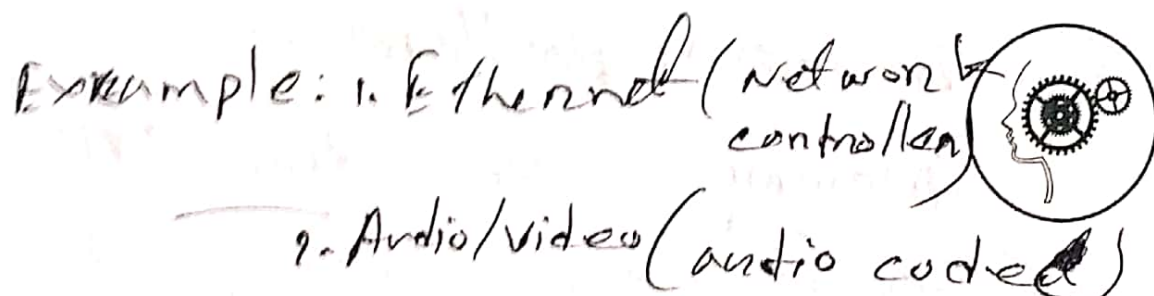 Example: 1. Ethernet (Network
controller)
2. Audio/video (audio coded)